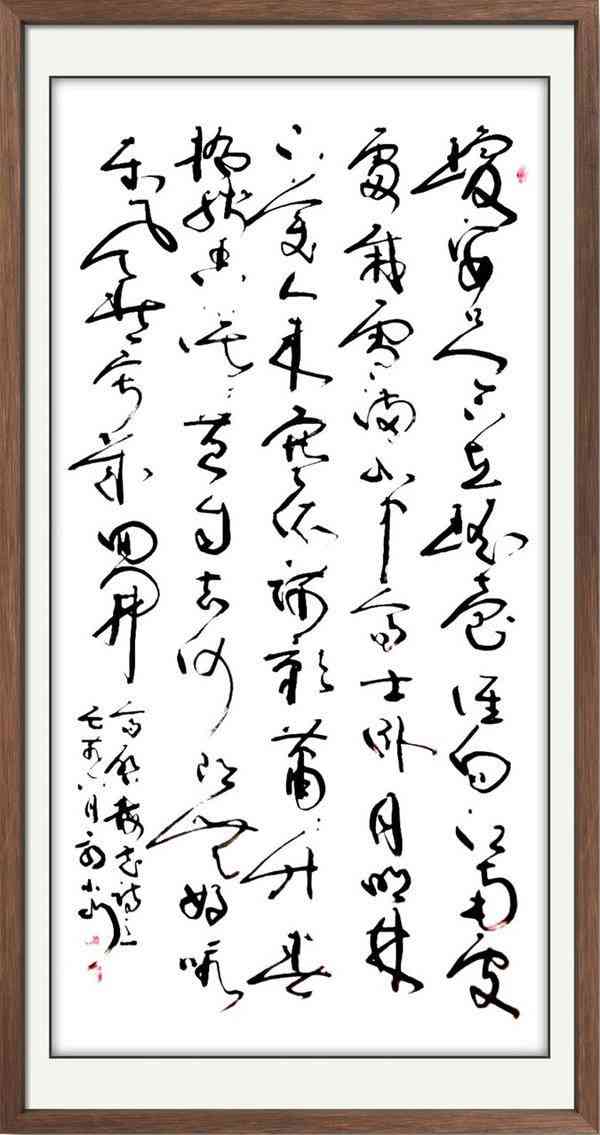 瓊姿只合在瑤臺誰向江南處
處栽雪滿山中高士臥月明林
下美人來寒依疏影蕭々竹春
掩殘香漠々苔自去何郎無好詠
東風愁寂幾回開
高啟梅花詩
月